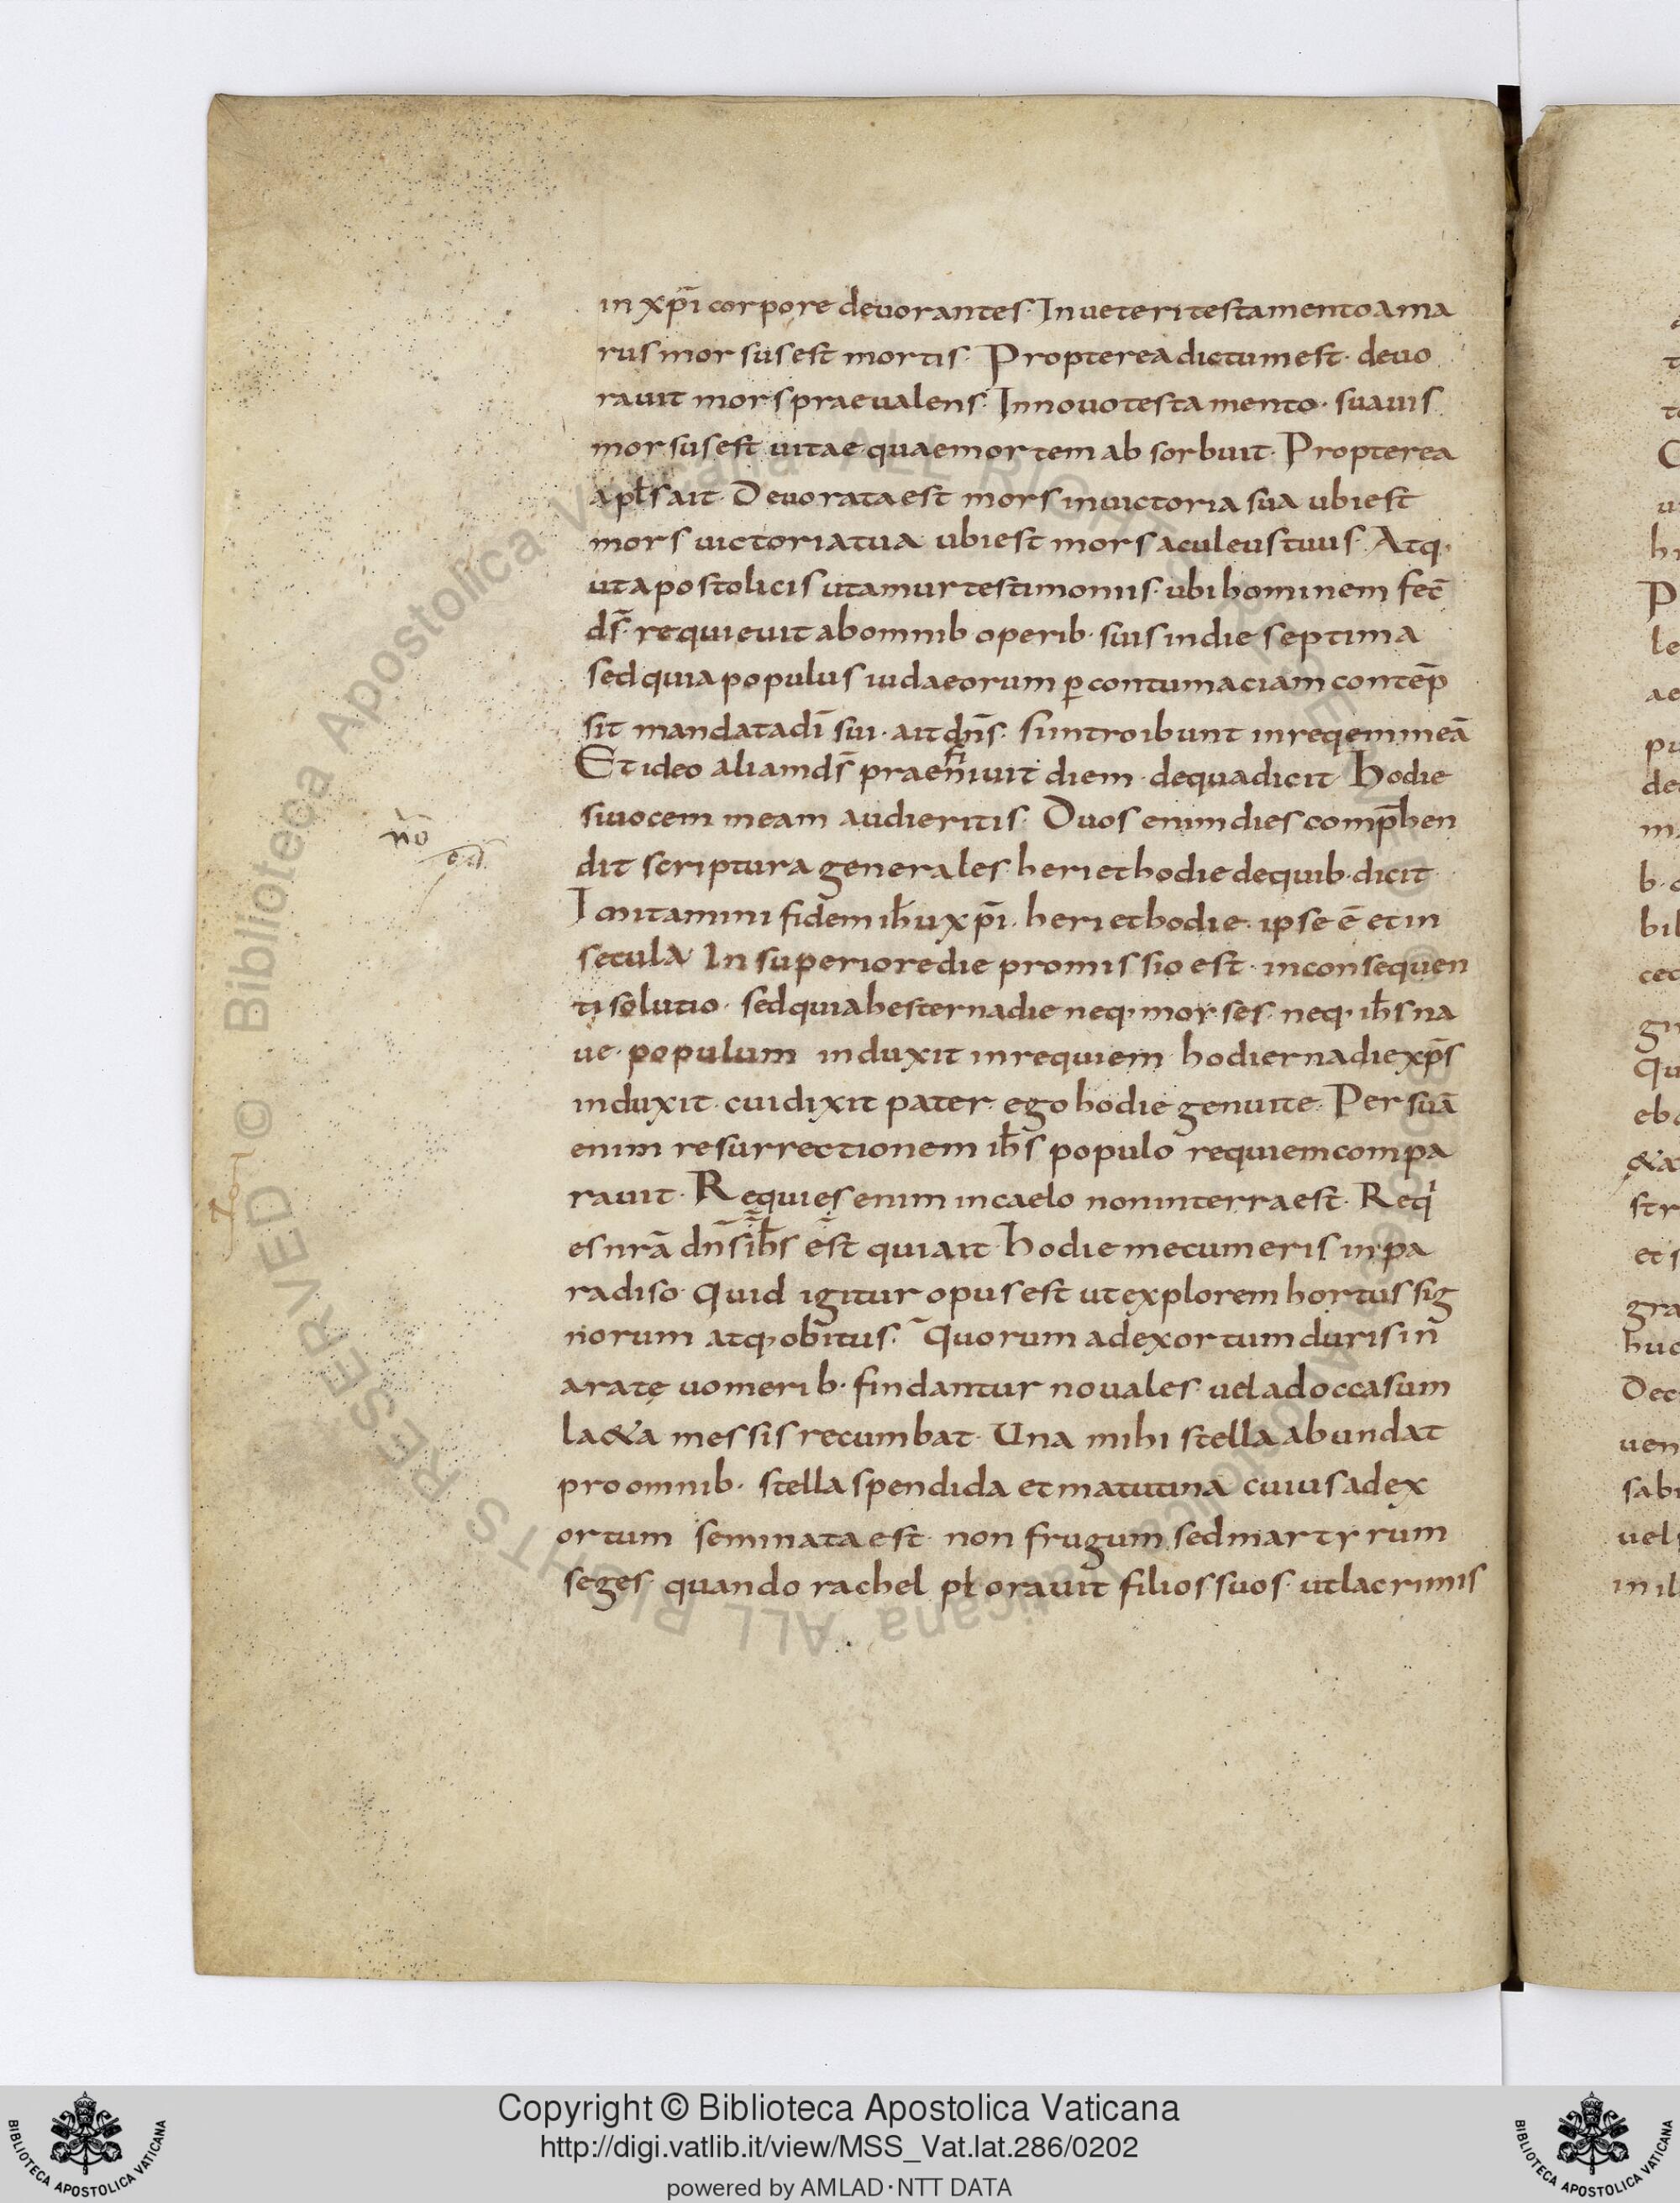 in xp̄i corpore deuorantes· In ueteri testamento ama
rus morsus est mortis· Propterea dictum est· deuo
rauit mors praeualens· In nouo testamento· suauis
morsus est uitae quae mortem absorbuit· Propterea
apl̄s ait· Deuorata est mors in uictoria sua ubi est
mors uictoria tua ubi est mors aculeus tuus· Atq·
ut apostolicis utamur testimoniis· ubi hominem fec̄
ds̄· requieuit ab omnib operib· suis in die septima
sed quia populus iudaeorum p̱ contumaciam contēp
sit mandata dī sui· ait dn̄s· si introibunt in reqem meā
Et ideo aliam ds̄ praefiniuit diem· de qua dicit· Hodie
si uocem meam audieritis· Duos enim dies comp̄hen
dit scriptura generales· heri et hodie de quib· dicit·
Imitamini fidem ih̄u xp̄i· heri et hodie· ipse ē et in
secula· In superiore die promissio est· in consequen
ti solutio· sed quia hesterna die neq· morses· neq· ih̄s na
ue· populum induxit in requiem· hodierna die xp̄s
induxit· cui dixit pater· ego hodie genui te· Per suā
enim resurrectionem ih̄s populo requiem compa
rauit· Requies enim in caelo non in terra est· Reqi
es nrā dn̄s ih̄s est qui ait· Hodie mecum eris in pa
radiso· Quid igitur opus est ut explorem hortus sig
norum atq· obitus· Quorum ad exortum duris in
aratę uomerib· findantur nouales· uel ad occasum
la&a messis recumbat· Una mihi stella abundat
pro omnib· stella spendida et matutina cuius ad ex
ortum seminata est· non frugum sed martyrum
seges· quando rachel plorauit filios suos· ut lacrimis
nō
Copyright © Biblioteca Apostolica Vaticana
http://digi.vatlib.it/view/MSS_Vat.lat.286/0202
powered by AMLAD·NTT DATA
BIBLIOTECA APOSTOLICA VATICANA
BIBLIOTECA APOSTOLICA VATICANA
© Biblioteca Apostolica Vaticana ALL RIGHTS RESERVED